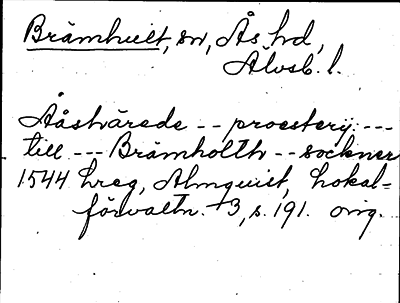 Brämhult, sn, Ås hd,
Älvsb. l.
Ååstvärede -- proesterij ---
till --- Brämholtth -- sockner
1544 hreg, Almquist, Lokal-
förvaltn. 3, s. 191. orig.